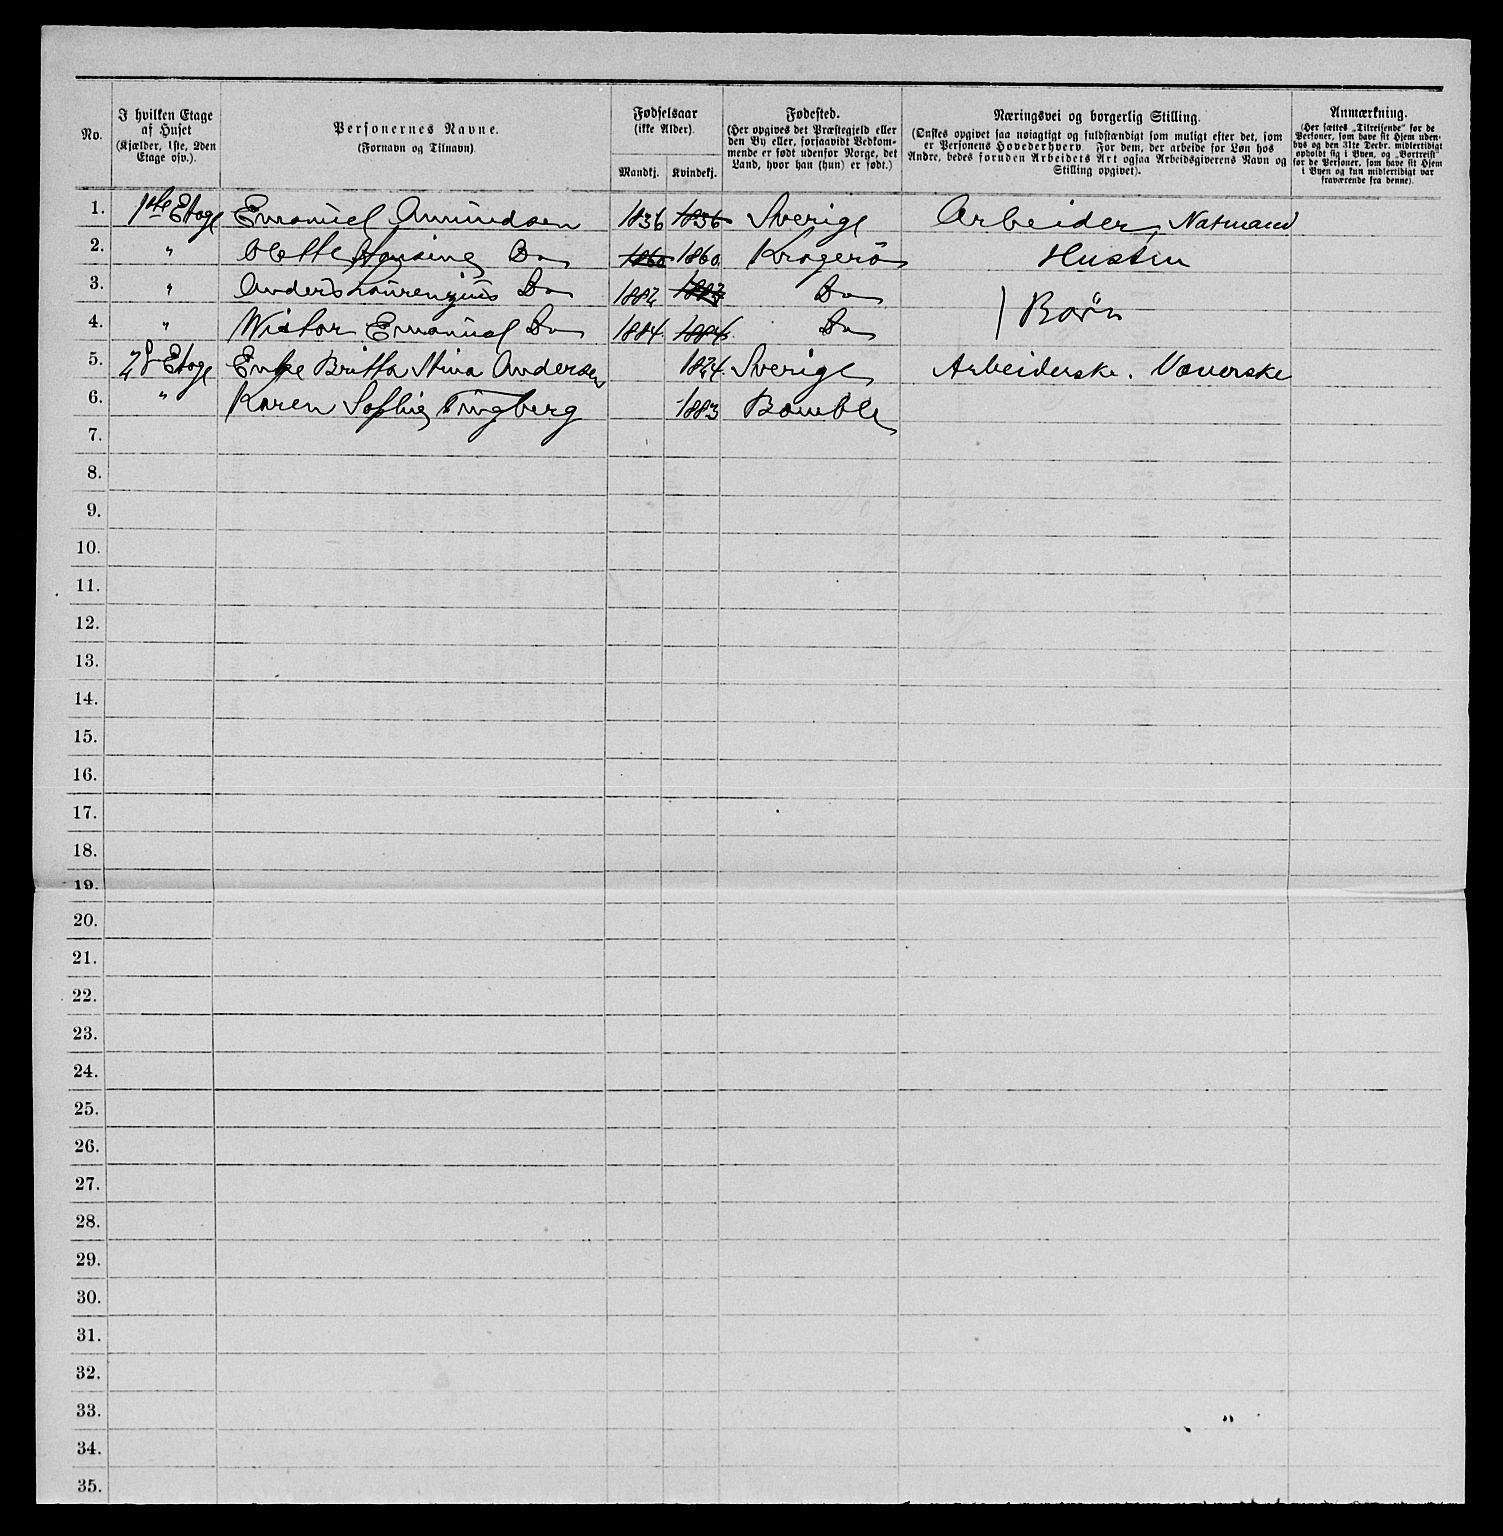 No.
I hvilken Etage af Huset (Kjælder, 1ste, 2den Etage osv.).
Personernes Navne. (Fornavn og Tilnavn)
Fødselsaar (ikke Alder).
Mandkj. Kvindekj.
Fødested. (Her opgives det Præstegjeld eller den By eller, forsaavidt Vedkommende er født udenfor Norge, det Land, hvor han (hun) er født.)
Næringsvei og borgerlig Stilling. (Ønskes opgivet saa nøiagtigt og fuldstændigt som muligt efter det, som er Personens Hovederhverv. For dem, der arbeide for Løn hos Andre, bedes foruden Arbeidets Art ogsaa Arbeidsgiverens Navn og Stilling opgivet).
Anmærkning. (Her sættes „Tilreisende" for de Personer, som have sit Hjem udenbys og den 31te Decbr. midlertidigt opholdt sig i Byen, og „Bortreist" for de Personer, som have sit Hjem i Byen og kun midlertidigt var fraværende fra denne).
1. 1ste Etage Emanuel Amundsen 1836 1836 Sverige Arbeider, Natmand
2. " Olette Hansine Do 1860 1860 Kragerö Hustru
3. " Anders Laurenzius Do 1882 Do
Børn
4. " Widtor Emanuel Do 1884 1884 Do
5. 2d Etage Enke Britta Stina Andersen 1824 Sverige Arbeiderske. Væverske
6. " Karen Sophie Tingberg 1883 Bamble
7.
8.
9.
10.
11.
12.
13.
14.
15.
16.
17.
18.
19.
20.
21.
22.
23.
24.
25.
26.
27.
28.
29.
30.
31.
32.
33.
34.
35.